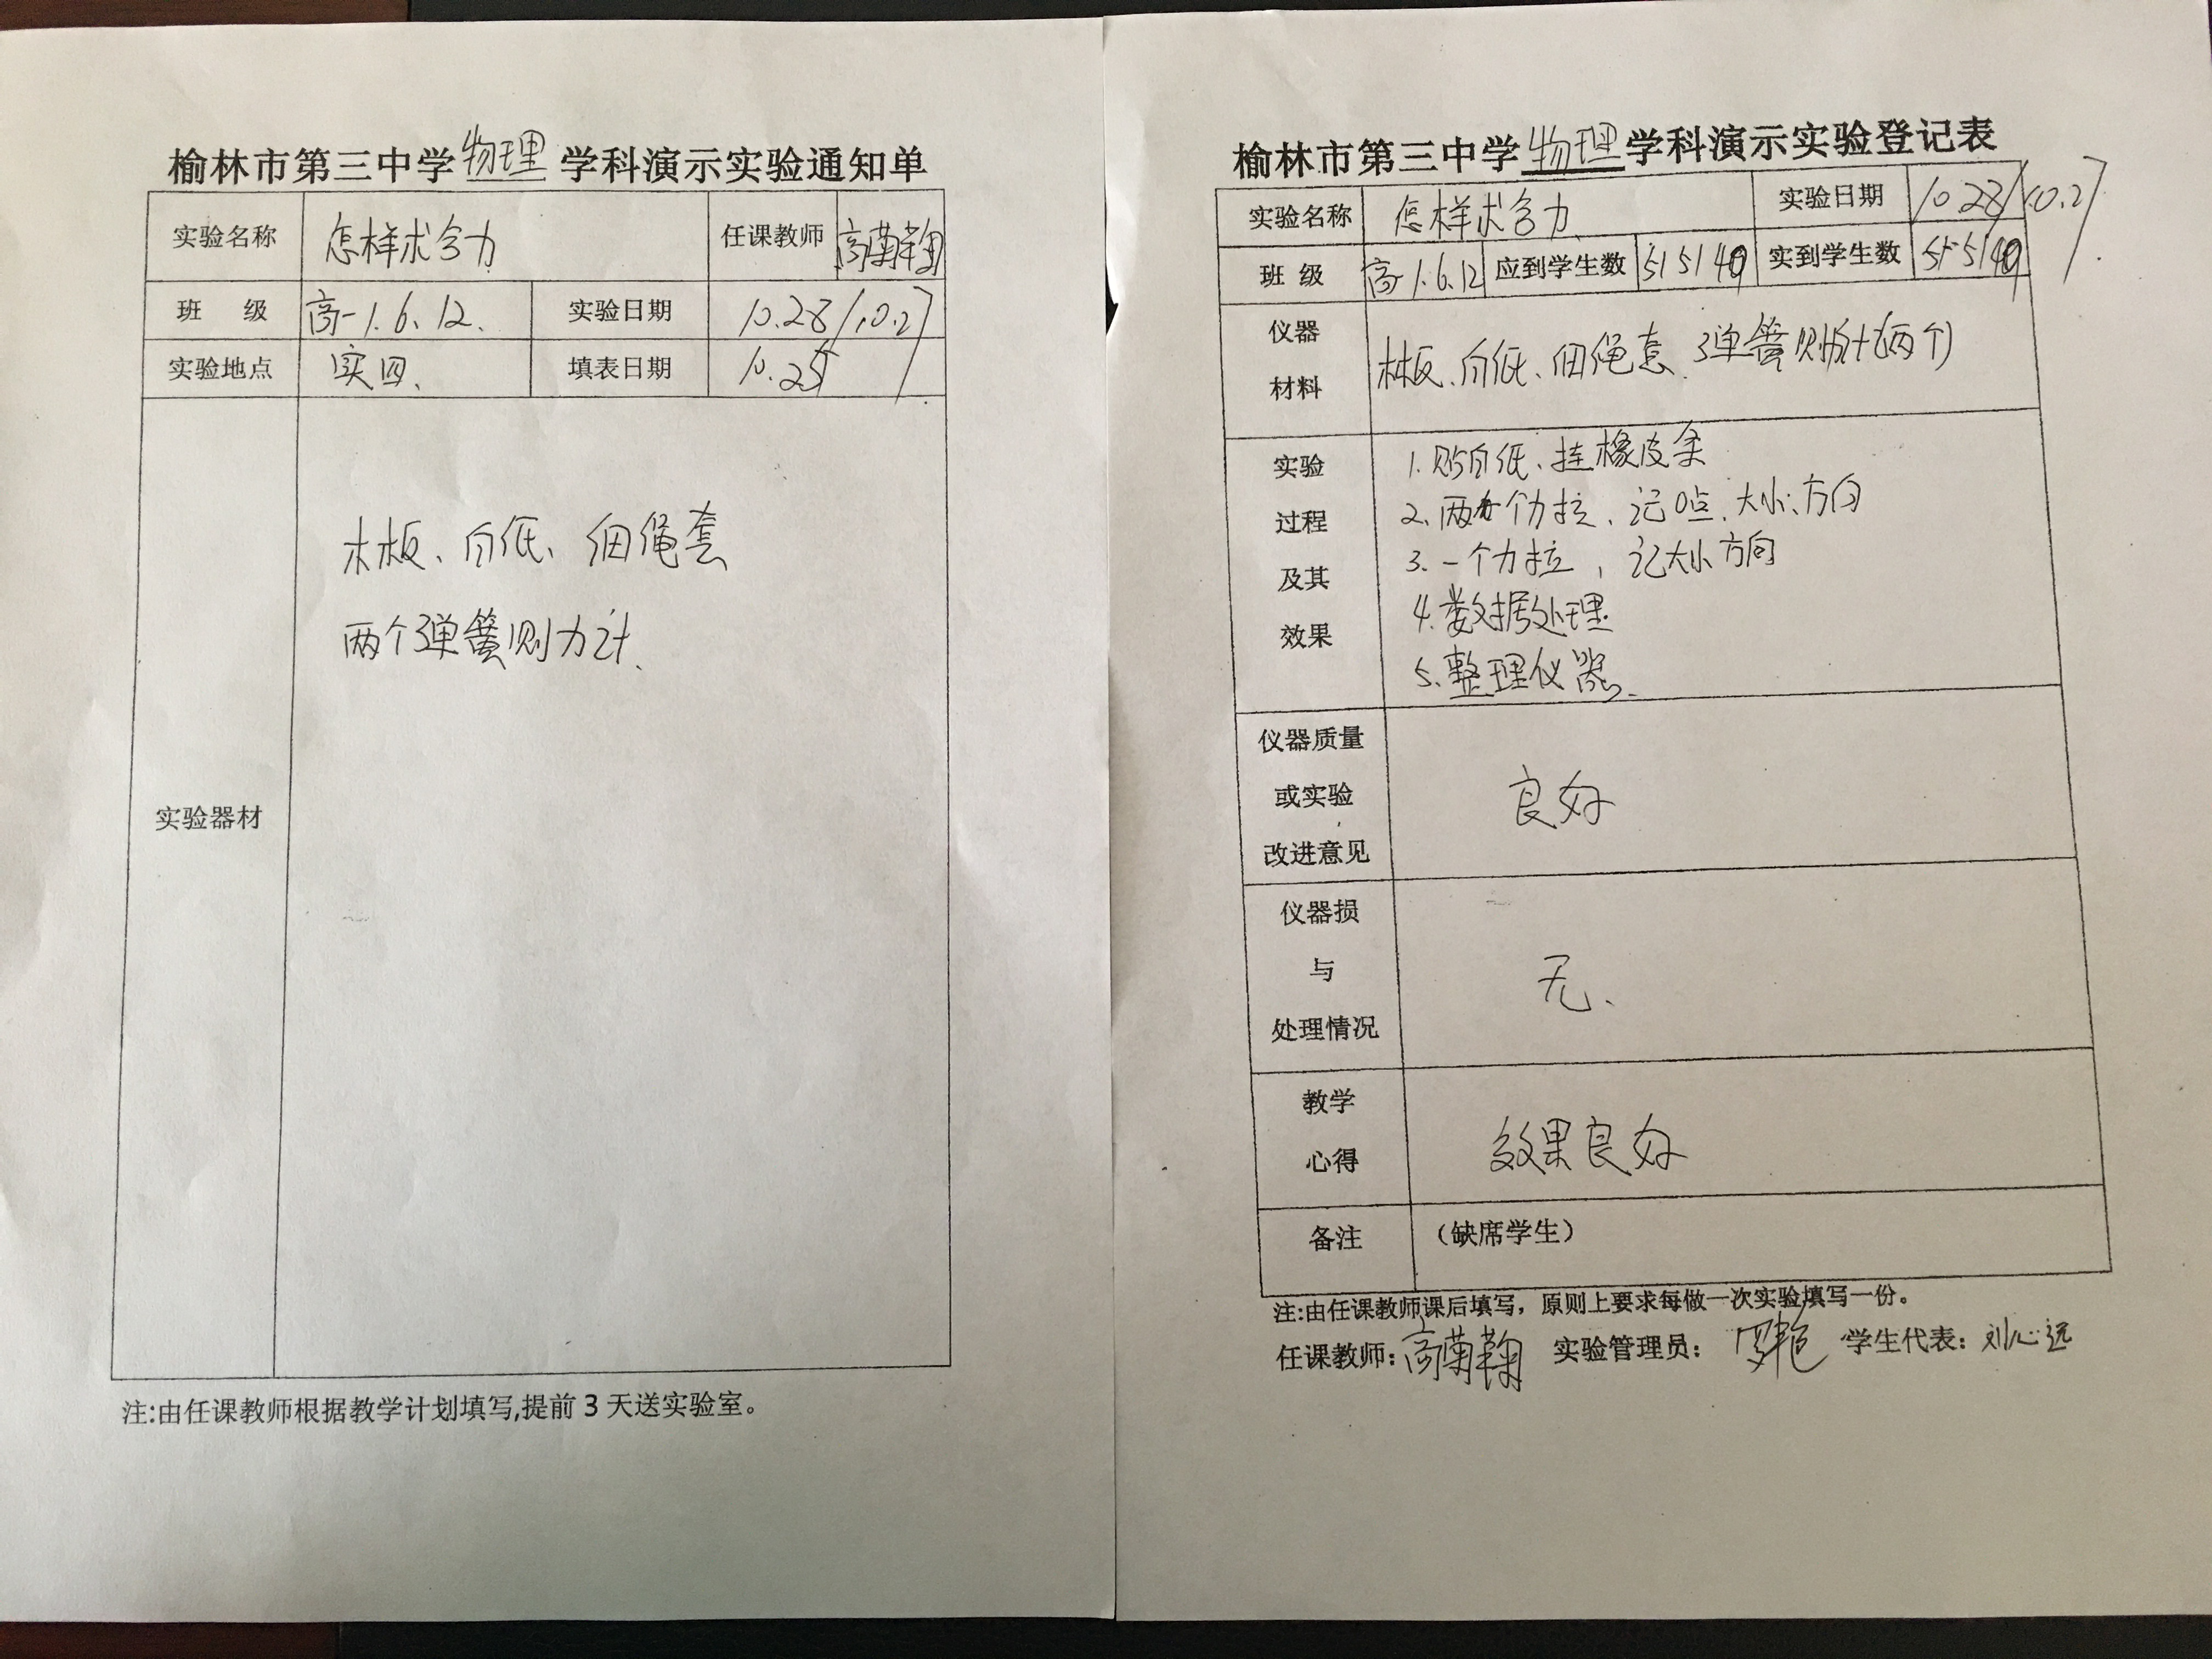 榆林市第三中学物理学科演示实验通知单
实验名称 怎样求合力 任课教师 高菊菊
班 级 高一1.6.12. 实验日期 10.28/10.27
实验地点 实四、 填表日期 10.25
实验器材
木板、白纸、细绳套
两个弹簧测力计、
注:由任课教师根据教学计划填写,提前3天送实验室。
榆林市第三中学物理学科演示实验登记表
实验名称 怎样求合力 实验日期 10.28/10.27
班 级 高一1.6.12 应到学生数 51 51 49 实到学生数 51 51 49
仪器
材料
木板、白纸、细绳套、弹簧测力计(两个)
实验
过程
及其
效果
1.贴白纸、挂橡皮条
2.两个力拉、记O点、大小、方向
3.一个力拉,记大小方向
4.数据处理
5.整理仪器、
仪器质量
或实验
改进意见
良好
仪器损
与
处理情况
无、
教学
心得
效果良好
备注 (缺席学生)
注:由任课教师课后填写,原则上要求每做一次实验填写一份。
任课教师: 实验管理员: 罗艳 学生代表: 刘心远